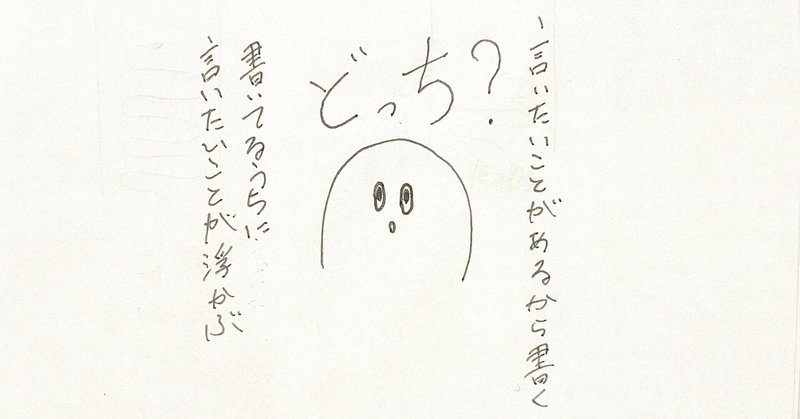 言いたいことがあるから書く
どっち?
書いてるうちに
言いたいことが浮かぶ